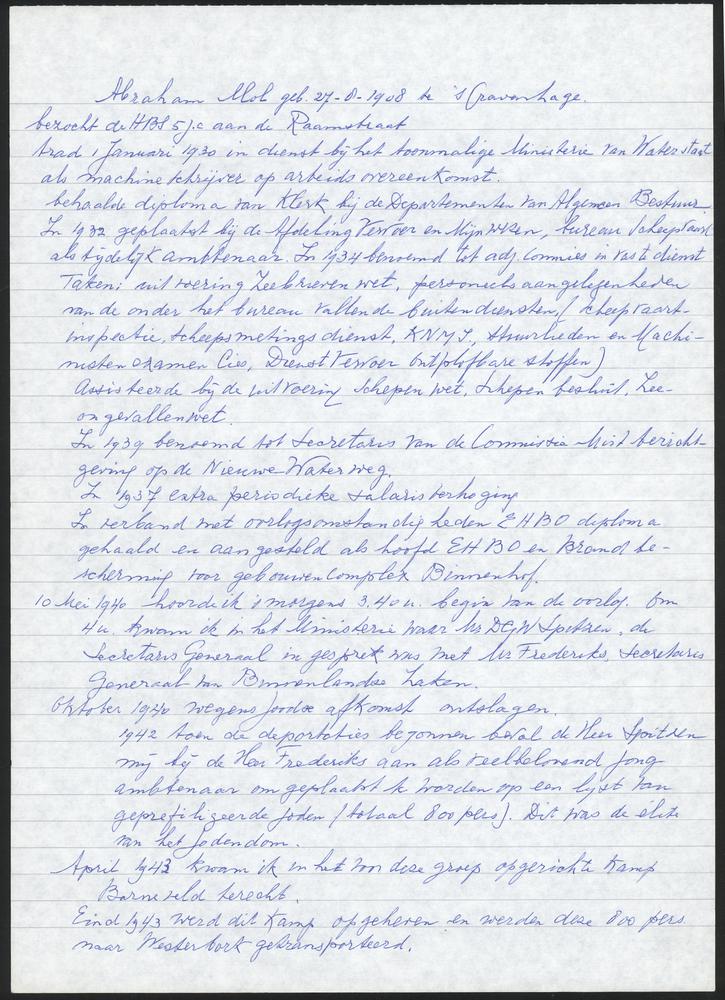 Abraham Mol geb. 27-8-1908 te 's Gravenhage.
bezocht de HBS 5 j.c aan de Raamstraat
trad 1 Januari 1930 in dienst bij het toenmalige Ministerie van Waterstaat
als machineschrijver op arbeidsovereenkomst.
behaalde diploma van Klerk bij de Departementen van Algemeen Bestuur
In 1932 geplaatst bij de Afdeling Vervoer en Mijnwezen, bureau Scheepvaart
als tijdelijk ambtenaar. In 1934 benoemd tot adj. Commies in vaste dienst
Taken: uitvoering Zeebrievenwet, personeelsaangelegenheden
van de onder het bureau vallende buitendiensten, (scheepvaart-
inspectie, scheepsmetingsdienst, KNMI, stuurlieden en Machi-
nisten examen Cies, Dienst Vervoer Ontplofbare stoffen)
Assisteerde bij de uitvoering schepenwet, schepenbesluit, Zee-
ongevallenwet.
In 1939 benoemd tot secretaris van de Commissie Mist bericht-
geving op de Nieuwe Waterweg.
In 1937 extra periodieke salarisverhoging
In verband met oorlogsomstandigheden EHBO diploma
gehaald en aangesteld als hoofd EHBO en Brand be-
scherming voor gebouwencomplex Binnenhof.
10 Mei 1940 hoorde ik 's morgens 3.40 u. begin van de oorlog. Om
4 u. kwam ik in het Ministerie waar Mr DGW Spitzen, de
Secretaris Generaal in gesprek was met Mr Frederiks, secretaris
Generaal van Binnenlandse Zaken.
Oktober 1940 wegens Joodse afkomst ontslagen.
1942 toen de deportaties begonnen beval de Heer Spitzen
mij bij de Heer Frederiks aan als veelbelovend jong
ambtenaar om geplaatst te worden op een lijst van
geprefiligeerde Joden (totaal 800 pers). Dit was de élite
van het Jodendom.
April 1943 kwam ik in het voor deze groep opgerichte Kamp
Barneveld terecht.
Eind 1943 werd dit Kamp opgeheven en werden deze 800 pers.
naar Westerbork getransporteerd.